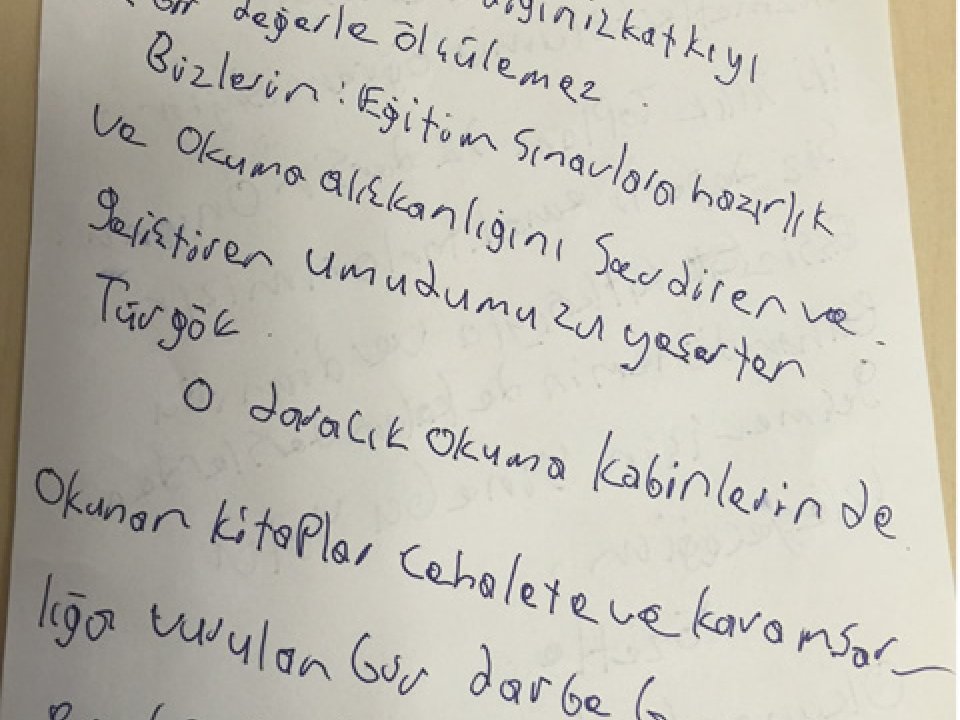 değerle ölçülemez.
Bizlerin: Eğitim Sınavlara hazırlık
ve Okuma alışkanlığını Sevdiren ve
geliştiren umudumuzu yeşerten
Türgök.
O daracık okuma kabinlerin de
Okunan kitaplar Cehalete ve karamsar_
lığa vurulan bir darbe